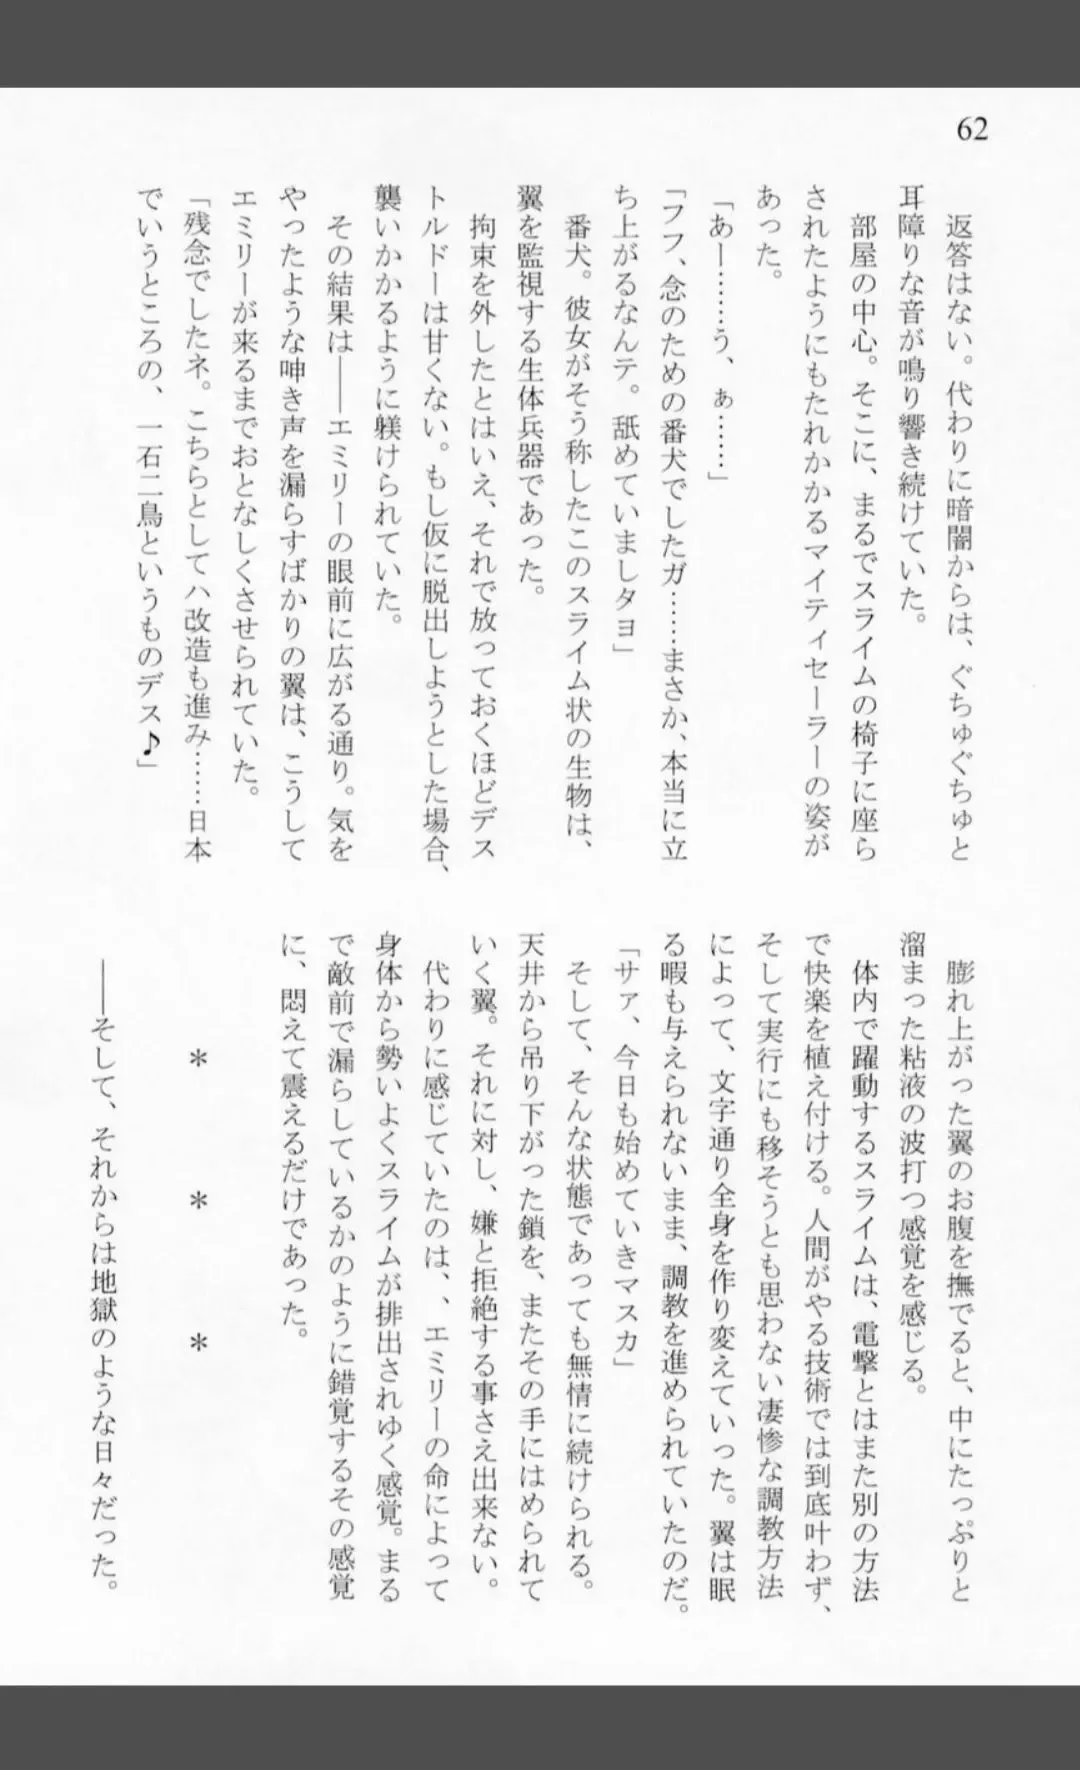 62
返答はない。代わりに暗闇からは、ぐちゅぐちゅと
耳障りな音が鳴り響き続けていた。
部屋の中心。そこに、まるでスライムの椅子に座ら
されたようにもたれかかるマイティセーラーの姿が
あった。
「あー……う、ぁ……」
「フフ、念のための番犬でしたガ……まさか、本当に立
ち上がるなんテ。舐めていましタヨ」
番犬。彼女がそう称したこのスライム状の生物は、
翼を監視する生体兵器であった。
拘束を外したとはいえ、それで放っておくほどデス
トルドーは甘くない。もし仮に脱出しようとした場合、
襲いかかるように躾けられていた。
その結果は――エミリーの眼前に広がる通り。気を
やったような呻き声を漏らすばかりの翼は、こうして
エミリーが来るまでおとなしくさせられていた。
「残念でしたネ。こちらとしてハ改造も進み……日本
でいうところの、一石二鳥というものデス♪」
膨れ上がった翼のお腹を撫でると、中にたっぷりと
溜まった粘液の波打つ感覚を感じる。
体内で躍動するスライムは、電撃とはまた別の方法
で快楽を植え付ける。人間がやる技術では到底叶わず、
そして実行にも移そうとも思わない凄惨な調教方法
によって、文字通り全身を作り変えていった。翼は眠
る暇も与えられないまま、調教を進められていたのだ。
「サァ、今日も始めていきマスカ」
そして、そんな状態であっても無情に続けられる。
天井から吊り下がった鎖を、またその手にはめられて
いく翼。それに対し、嫌と拒絶する事さえ出来ない。
代わりに感じていたのは、、エミリーの命によって
身体から勢いよくスライムが排出されゆく感覚。まる
で敵前で漏らしているかのように錯覚するその感覚
に、悶えて震えるだけであった。
＊　＊　＊
――そして、それからは地獄のような日々だった。